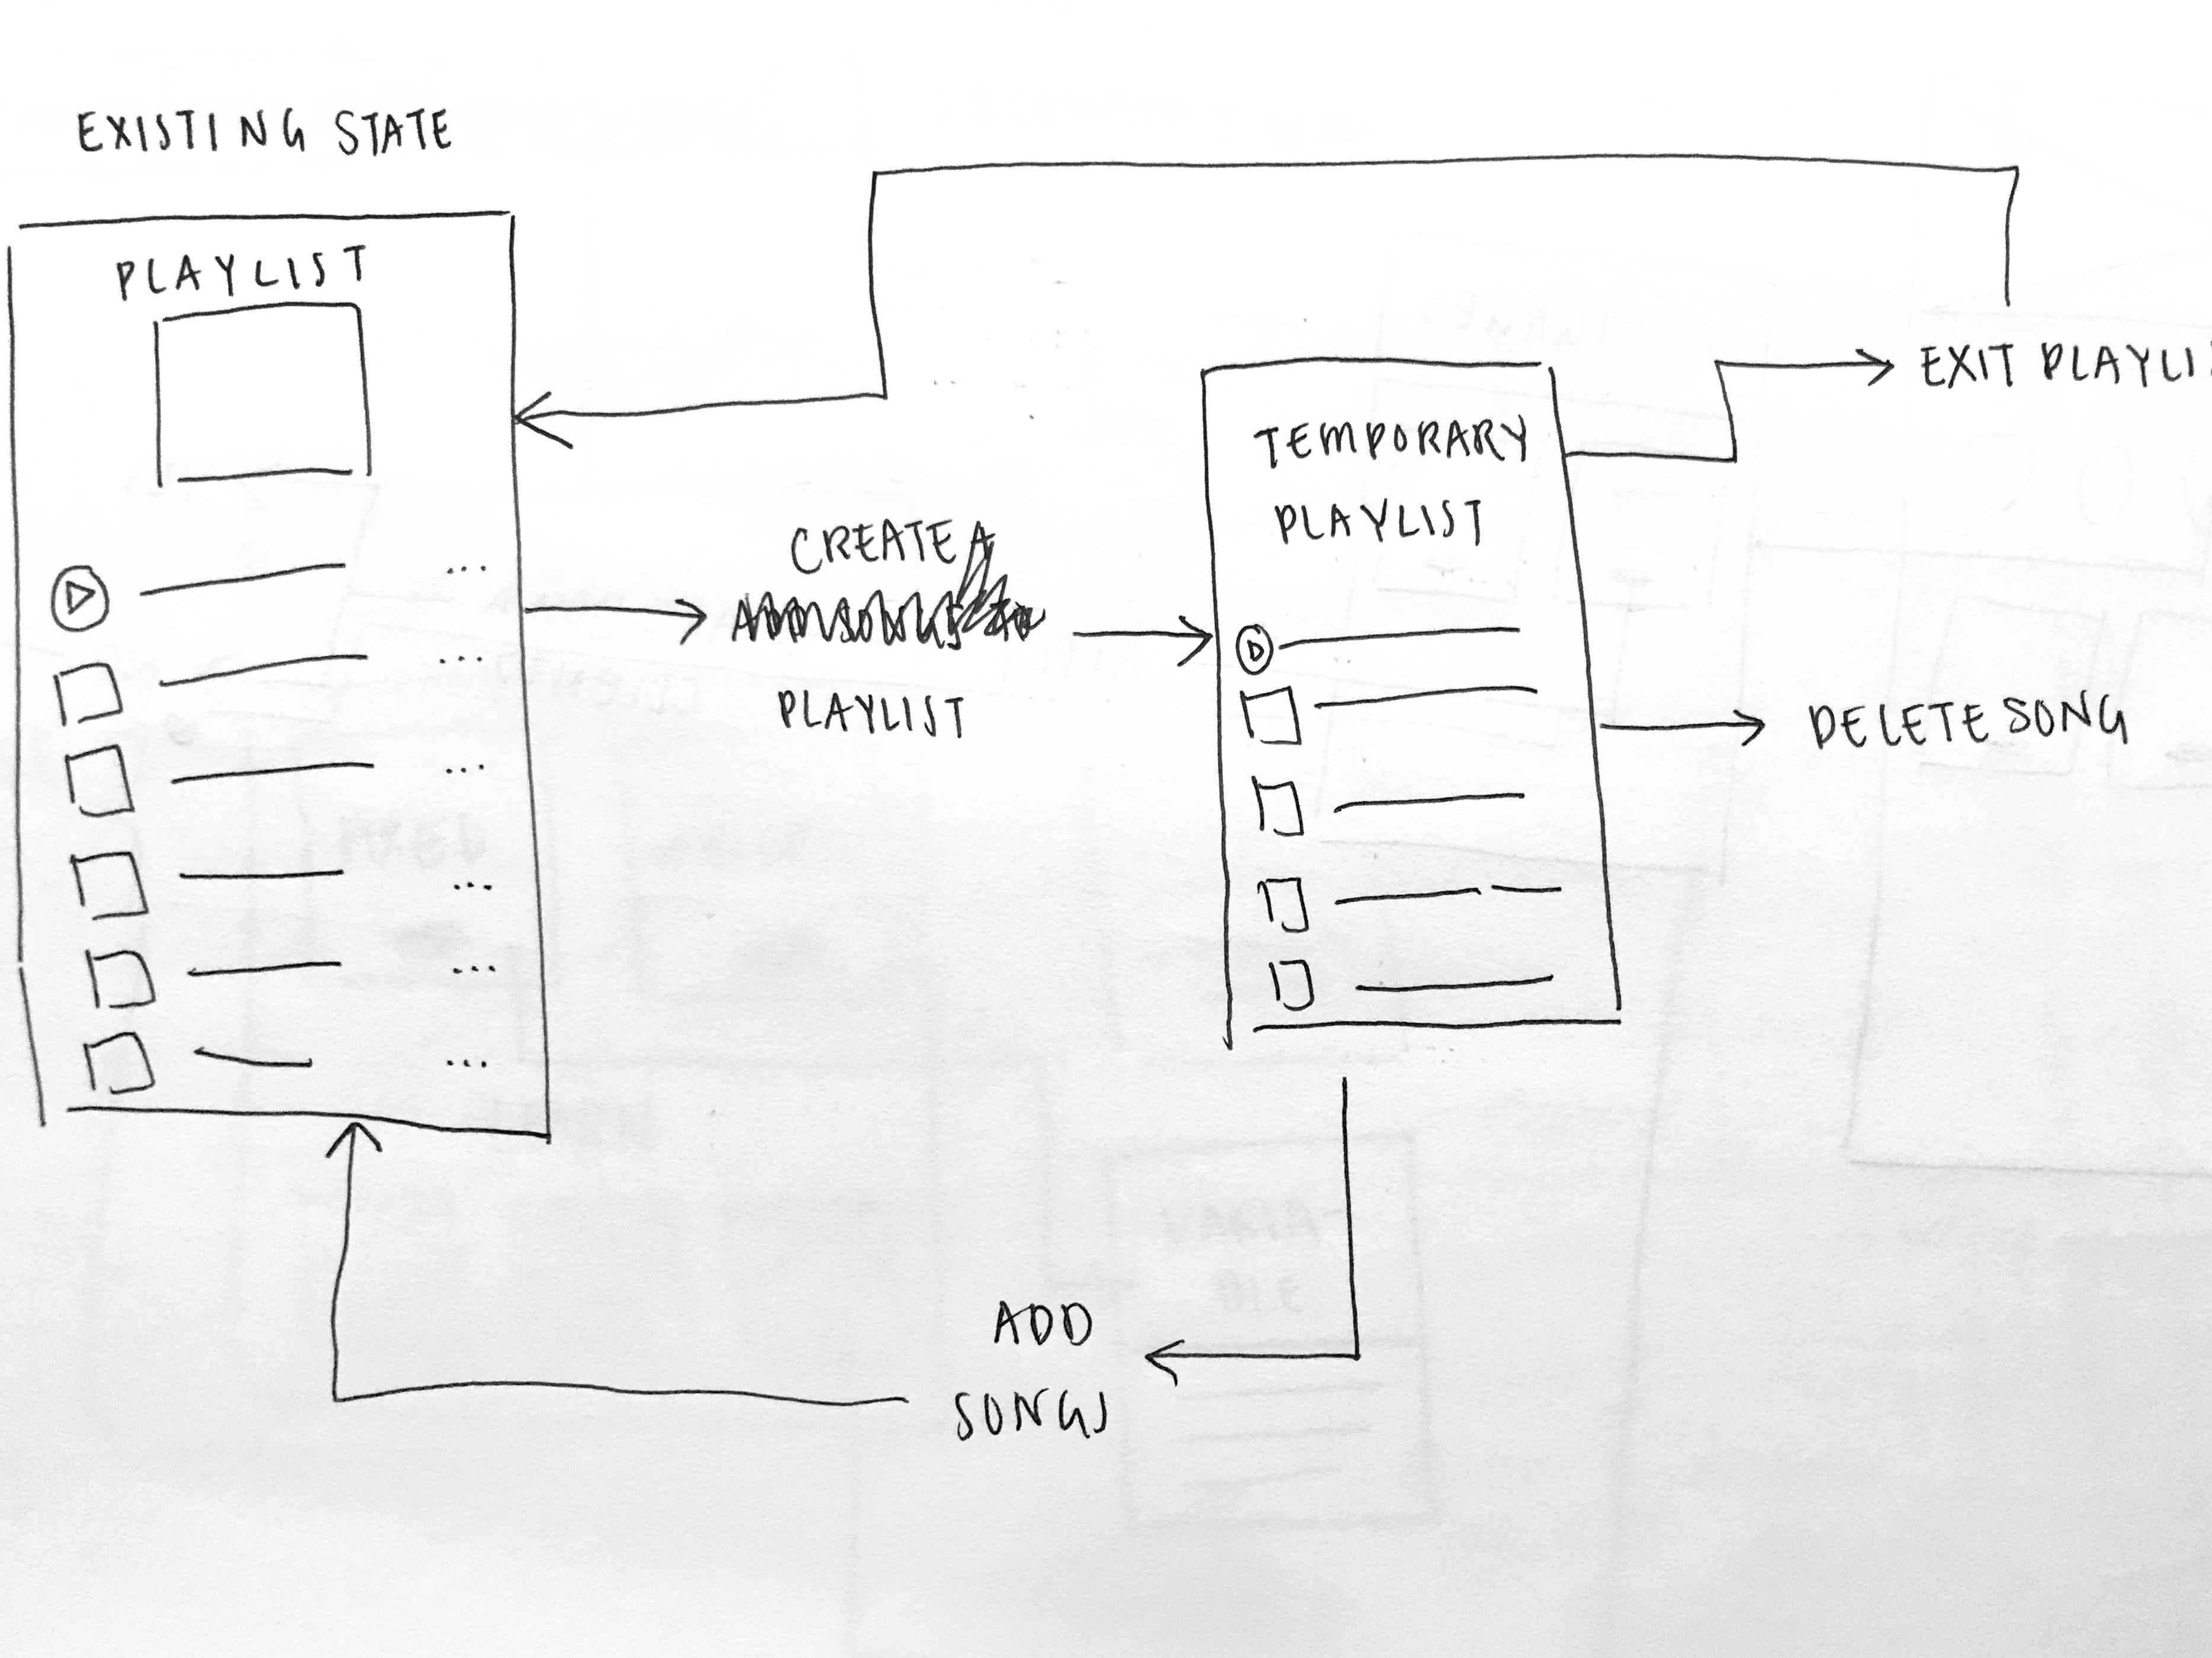 EXISTING STATE
PLAYLIST
CREATE A
PLAYLIST
TEMPORARY
PLAYLIST
EXIT PLAYLI
DELETE SONG
ADD
SONGS